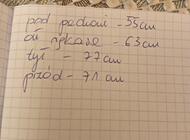 pod pachami - 55cm
od rękawa - 63cm
tył - 77cm
przód - 71cm